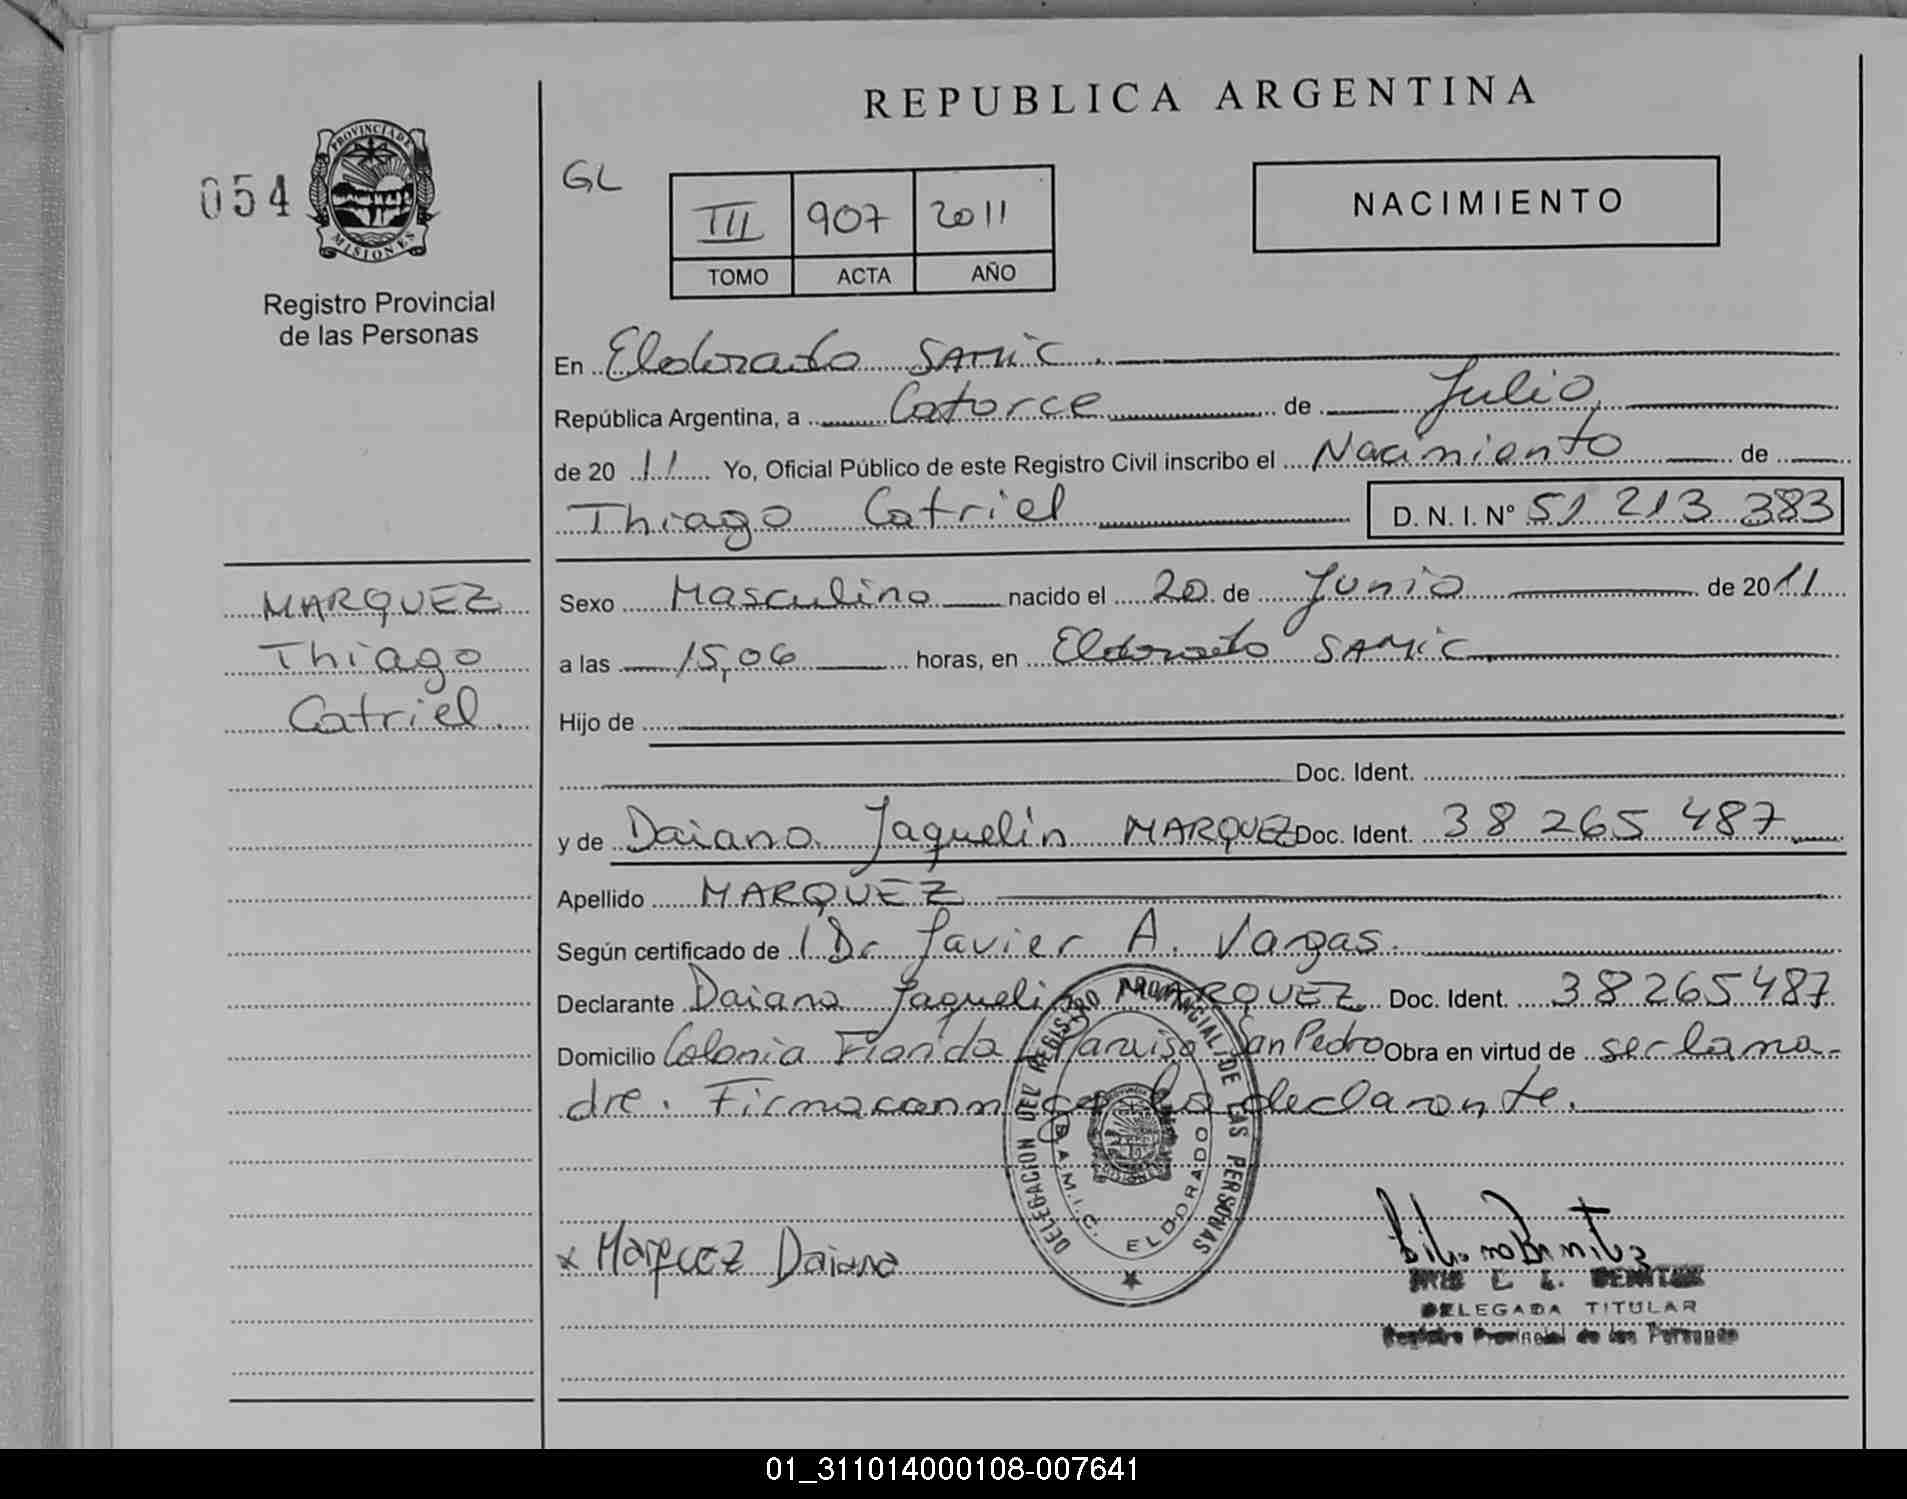 REPUBLICA ARGENTINA
054
PROVINCIA DE
MISIONES
Registro Provincial
de las Personas
GL
III 907 2011
TOMO ACTA AÑO
NACIMIENTO
En Eldorado SAMIC
República Argentina, a Catorce de Julio
de 2011 Yo, Oficial Público de este Registro Civil inscribo el Nacimiento de
Thiago Catriel D. N. I. N° 51 213 383
MARQUEZ
Thiago
Catriel
Sexo Masculino nacido el 20 de Junio de 2011
a las 15,06 horas, en Eldorado SAMIC
Hijo de
Doc. Ident.
y de Daiana Jaquelin MARQUEZ Doc. Ident. 38 265 487
Apellido MARQUEZ
Según certificado de Dr Javier A. Vargas
Declarante Daiana Jaquelin MARQUEZ Doc. Ident. 38265487
Domicilio Colonia Paraiso San Pedro Obra en virtud de ser la ma-
dre. Firma conmigo la declarante.
DELEGACION DEL REGISTRO PROVINCIAL DE LAS PERSONAS
S.A.M.I.C. ELDORADO
x Marquez Daiana
DELEGADA TITULAR
Registro Provincial de las Personas
01_311014000108-007641